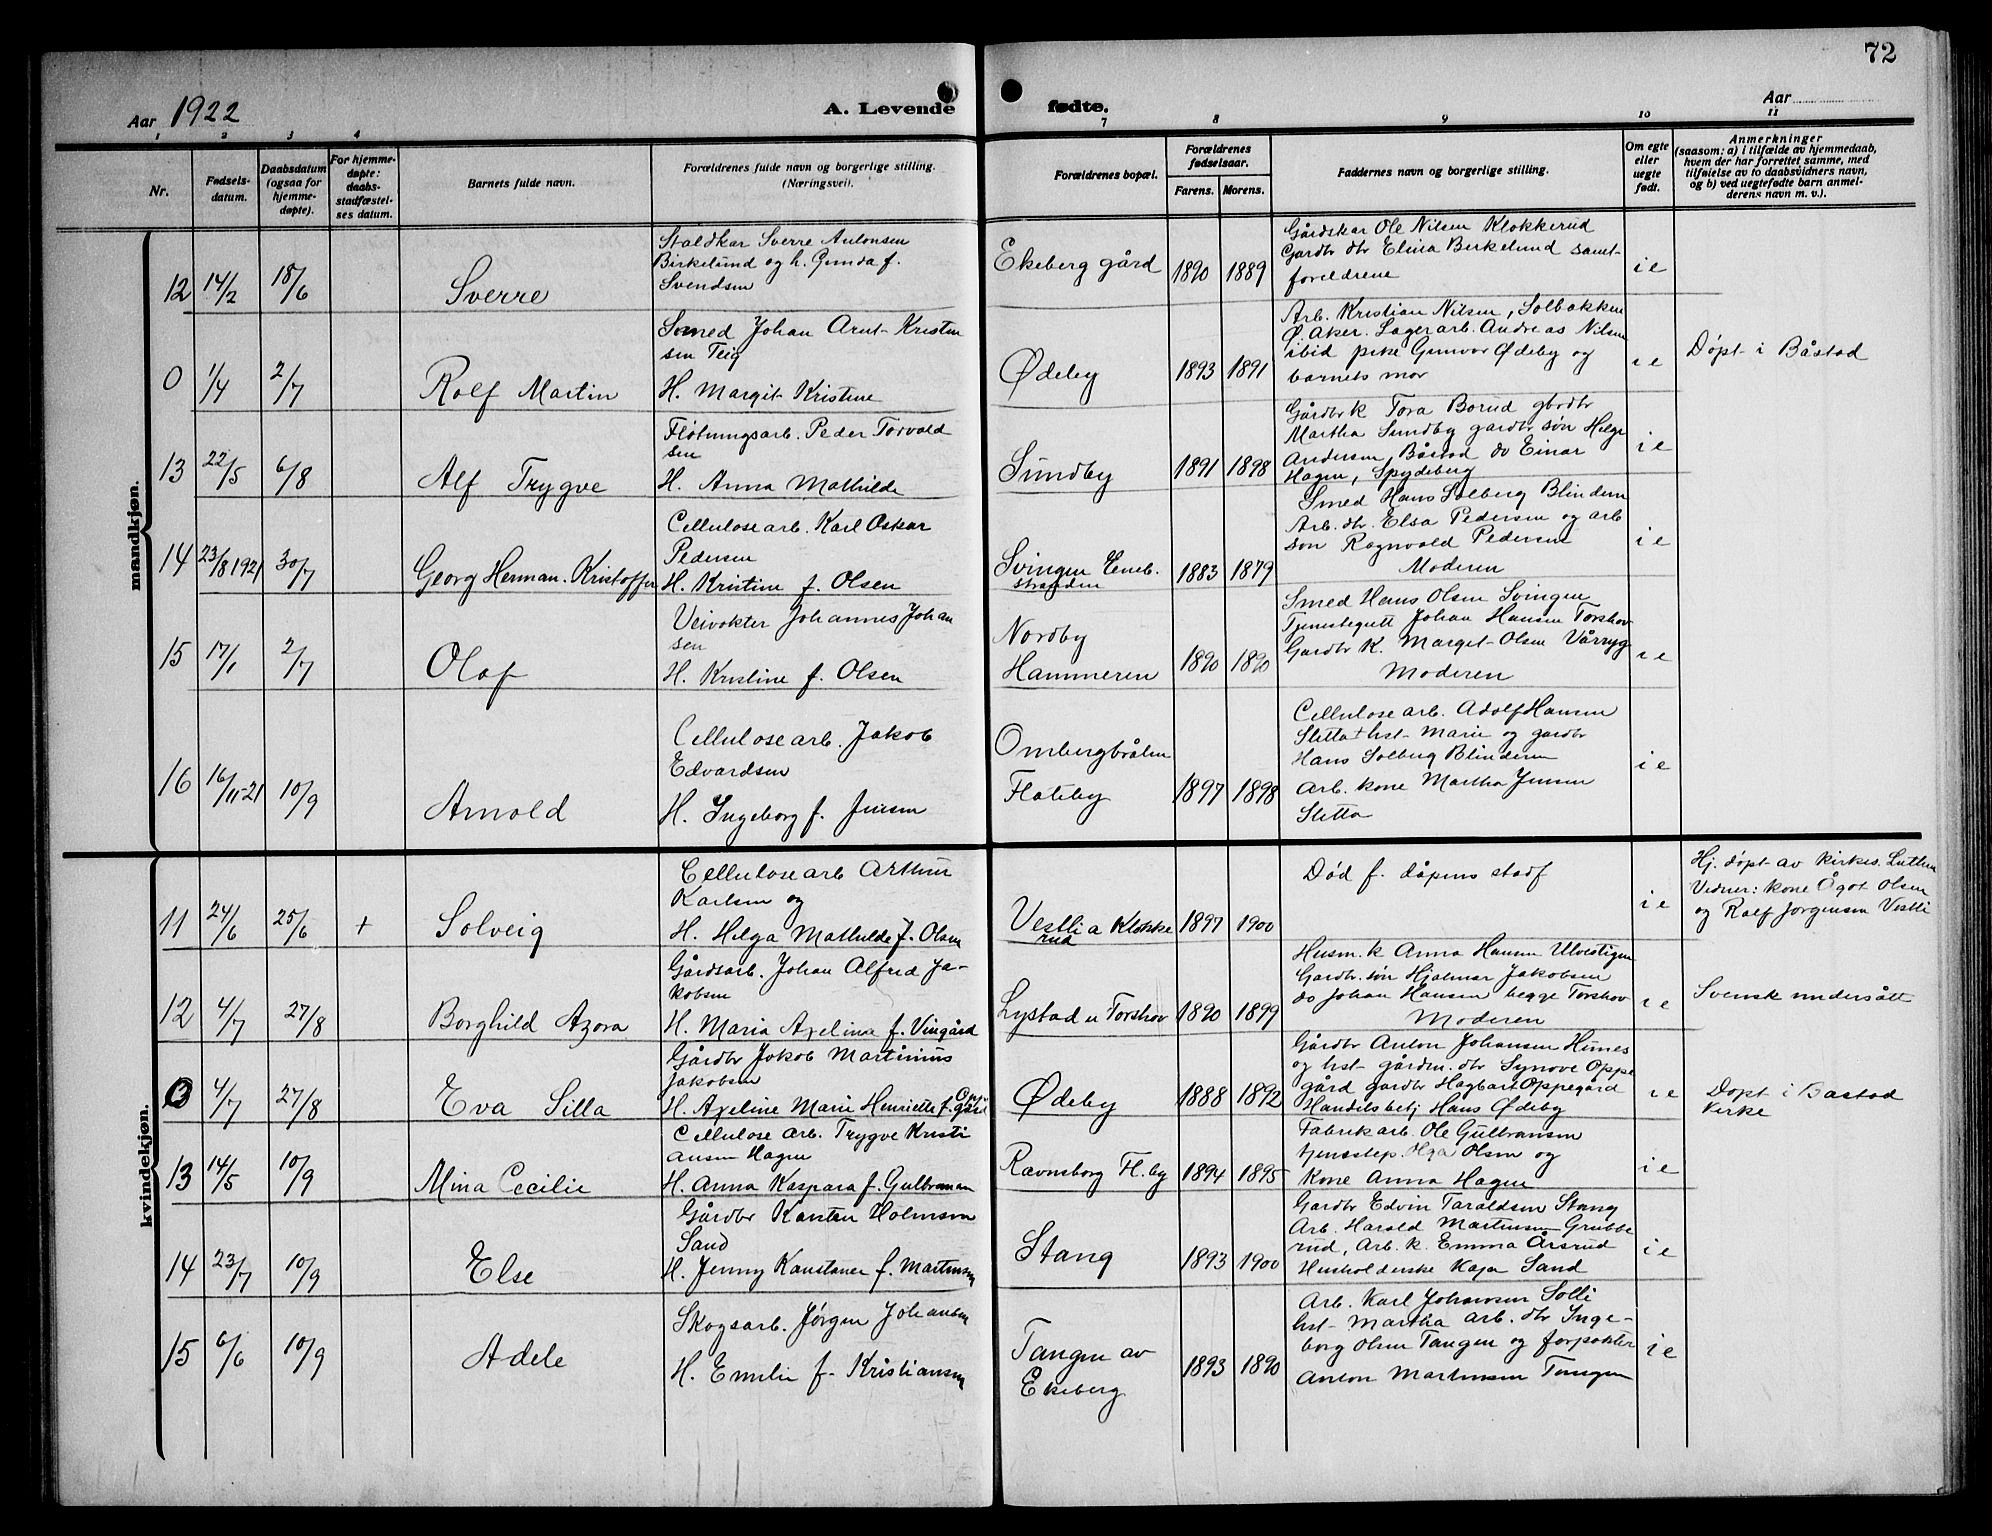 72
Aar 1922
A. Levende
fødte.
Aar
1 2 3 4
7 8 9 10 11
Nr.
Fødsels-
datum.
Daabsdatum
(ogsaa for
hjemme-
døpte).
For hjemme-
døpte:
daabs-
stadfæstel-
ses datum.
Barnets fulde navn.
Forældrenes fulde navn og borgerlige stilling.
(Næringsvei).
Forældrenes bopæl.
Forældrenes
fødselsaar.
Farens. Morens.
Faddernes navn og borgerlige stilling.
Om egte
eller
uegte
født.
Anmerkninger
(saasom: a) i tilfælde av hjemmedaab,
hvem der har forrettet samme, med
tilføielse av to daabsvidners navn,
og b) ved uegtefødte barn anmel-
derens navn m. v.).
mandkjøn.
12 14/2 18/6 Sverre
Staldkar Sverre Antonsen
Birkelund og h. Gunda f.
Svendsen
Ekeberg gård 1890 1889
Gårdskar Ole Nilsen Klokkerud
Gardbr dtr Elina Birkelund samt
foreldrene
i e
0 1/4 2/7 Rolf Martin
Smed Johan Arnt Kristen
sen Teig
H. Margit Kristine
Ødeby 1893 1891
Arb. Kristian Nilsen, Solbakken
Ø. Aker. Lagerarb. Andreas Nilsen
ibid pike Gunvor Ødeby og
barnets mor
i e
Døpt i Båstad
13 22/5 6/8 Alf Trygve
Fløtningsarb. Peder Torvald
sen
H. Anna Mathilde
Sundby 1891 1898
Gårdbr k Tora Borud gbrdtr
Martha Sundby gardbr søn Helge
Andersen, Båstad do Einar
Hagen, Spydeberg
i e
14 23/8 1921 30/7 Georg Herman Kristoffer
Cellulosearb. Karl Oskar
Pedersen
H. Kristine f. Olsen
Svingen Eneb.
stranden
1883 1879
Smed Hans Solberg Blindern
Arb. dtr. Elsa Pedersen og arb
søn Ragnvald Pedersen
Moderen
i e
15 17/1 2/7 Olaf
Veivokter Johannes Johan
sen
H. Kristine f. Olsen
Nordby
Hammeren
1890 1890
Smed Hans Olsen Svingen
Tjenestegutt Johan Hansen Torshov
Gardbr K. Margit Olsen Vårryg
Moderen
i e
16 16/11-21 10/9 Arnold
Cellulosearb. Jakob
Edvardsen
H. Ingeborg f. Jensen
Flateby
1897 1898
Cellulosearb. Adolf Hansen
Sletta + hst Marie og gardbr
Hans Solberg Blindern
Arb. kone Martha Jensen
Sletta
i e
kvindekjøn.
11 24/6 25/6 + Solveig
Cellulosearb Arthur
Karlsen og
H. Helga Mathilde f. Olsen
Vestli a Klokke
rud
1897 1900
Død f. dåpens stadf
i e
Hj. døpt av kirkes. Luthen
Vidner: kone Ågot Olsen
og Rolf Jørgensen Vestli
12 4/7 27/8 Borghild Azora
Gårdsarb. Johan Alfred Ja-
kobsen
H. Maria Axelina f. Vingård
Lystad u Torshov 1890 1899
Husm. k Anna Hansen Ulvestigen
Gardbr. søn Hjalmar Jakobsen
do Johan Hansen begge Torshov
Moderen
i e
Svensk undersått
0 4/7 27/8 Eva Silla
Gårdbr Jakob Martinius
Jakobsen
H. Axeline Marie Henriette f. Oppe
gård
Ødeby 1888 1892
Gårdbr Anton Johansen Himes
og hst gården. dtr Synøve Oppe
gård gardbr Hagbart Oppegård
Handelsbetj Hans Ødeby
i e
Døpt i Båstad
Kirke
13 14/5 10/9 Mina Cecilie
Cellulose arb. Trygve Kristi
ansen Hagen
H. Anna Kaspara f. Gulbransen
Ravnsborg Fl.by 1894 1895
Fabrikarb. Ole Gulbransen
tjenestep. Olga Olsen og
Kone Anna Hagen
i e
14 23/7 10/9 Else
Gårdbr Karsten Holmsen
Sand
H. Jenny Konstanse f. Martinsen
Stang 1893 1900
Gardbr Edvin Taraldsen Stang
Arb. Harald Martinsen Grubbe
rud, Arb. k. Emma Årsrud
Husholderske Kaja Sand
i e
15 6/6 10/9 Adele
Skogsarb. Jørgen Johansen
H. Emilie f. Kristiansen
Tangen av
Ekeberg
1893 1890
Arb. Karl Johansen Solli
hst Martha arb. dtr Inge-
borg Olsen Tangen og forpakter
Anton Martinsen Tangen
i e